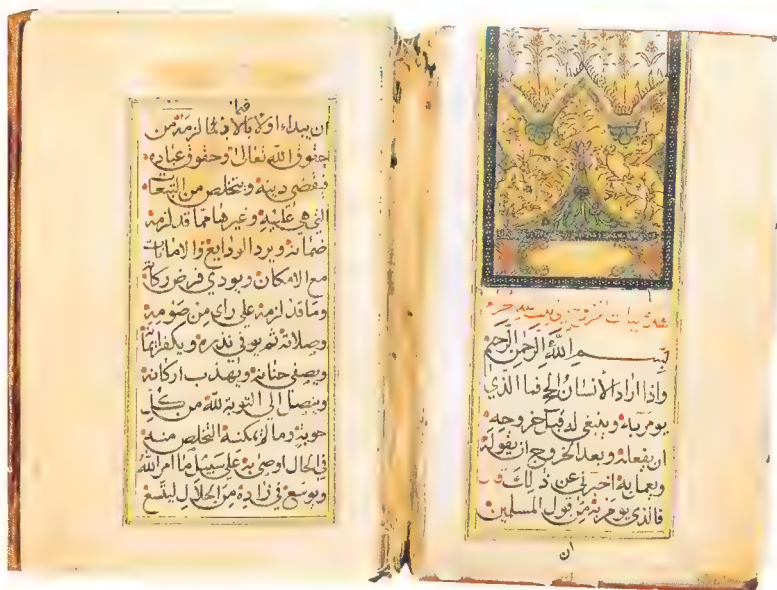 بسم الله الرحمن الرحيم
واذا اراد الانسان الحج فما الذي
يومر به وينبغي له قبل خروجه
ان يفعله وبعد الخروج ان يقوله
ويعمل به اخبرني عن ذلك
فالذي يومر به من قول المسلمين
ان
فيما
ان يبداء اولا بالاد لزمه من
حقوق الله تعالى وحقوق عباده
فيقضي دينه ويتخلص من التبعات
التي هي عليه وغيرها مما قد لزمه
ضمانه ويرد الودايع والامانات
مع الامكان ويودي فرض زكاته
وما قد لزمه على راي من صومه
وصلاته ثم يوفي نذره ويكفر ايمانه
ويصفي جنانه ويهذب اركانه
ويتنصل الى التوبة لله من كل
حوبة وما لم يمكنه التخلص منه
في الحال اوصى به على سبيل ما امر الله
ويوسع في زاده من الحلال ليتسع